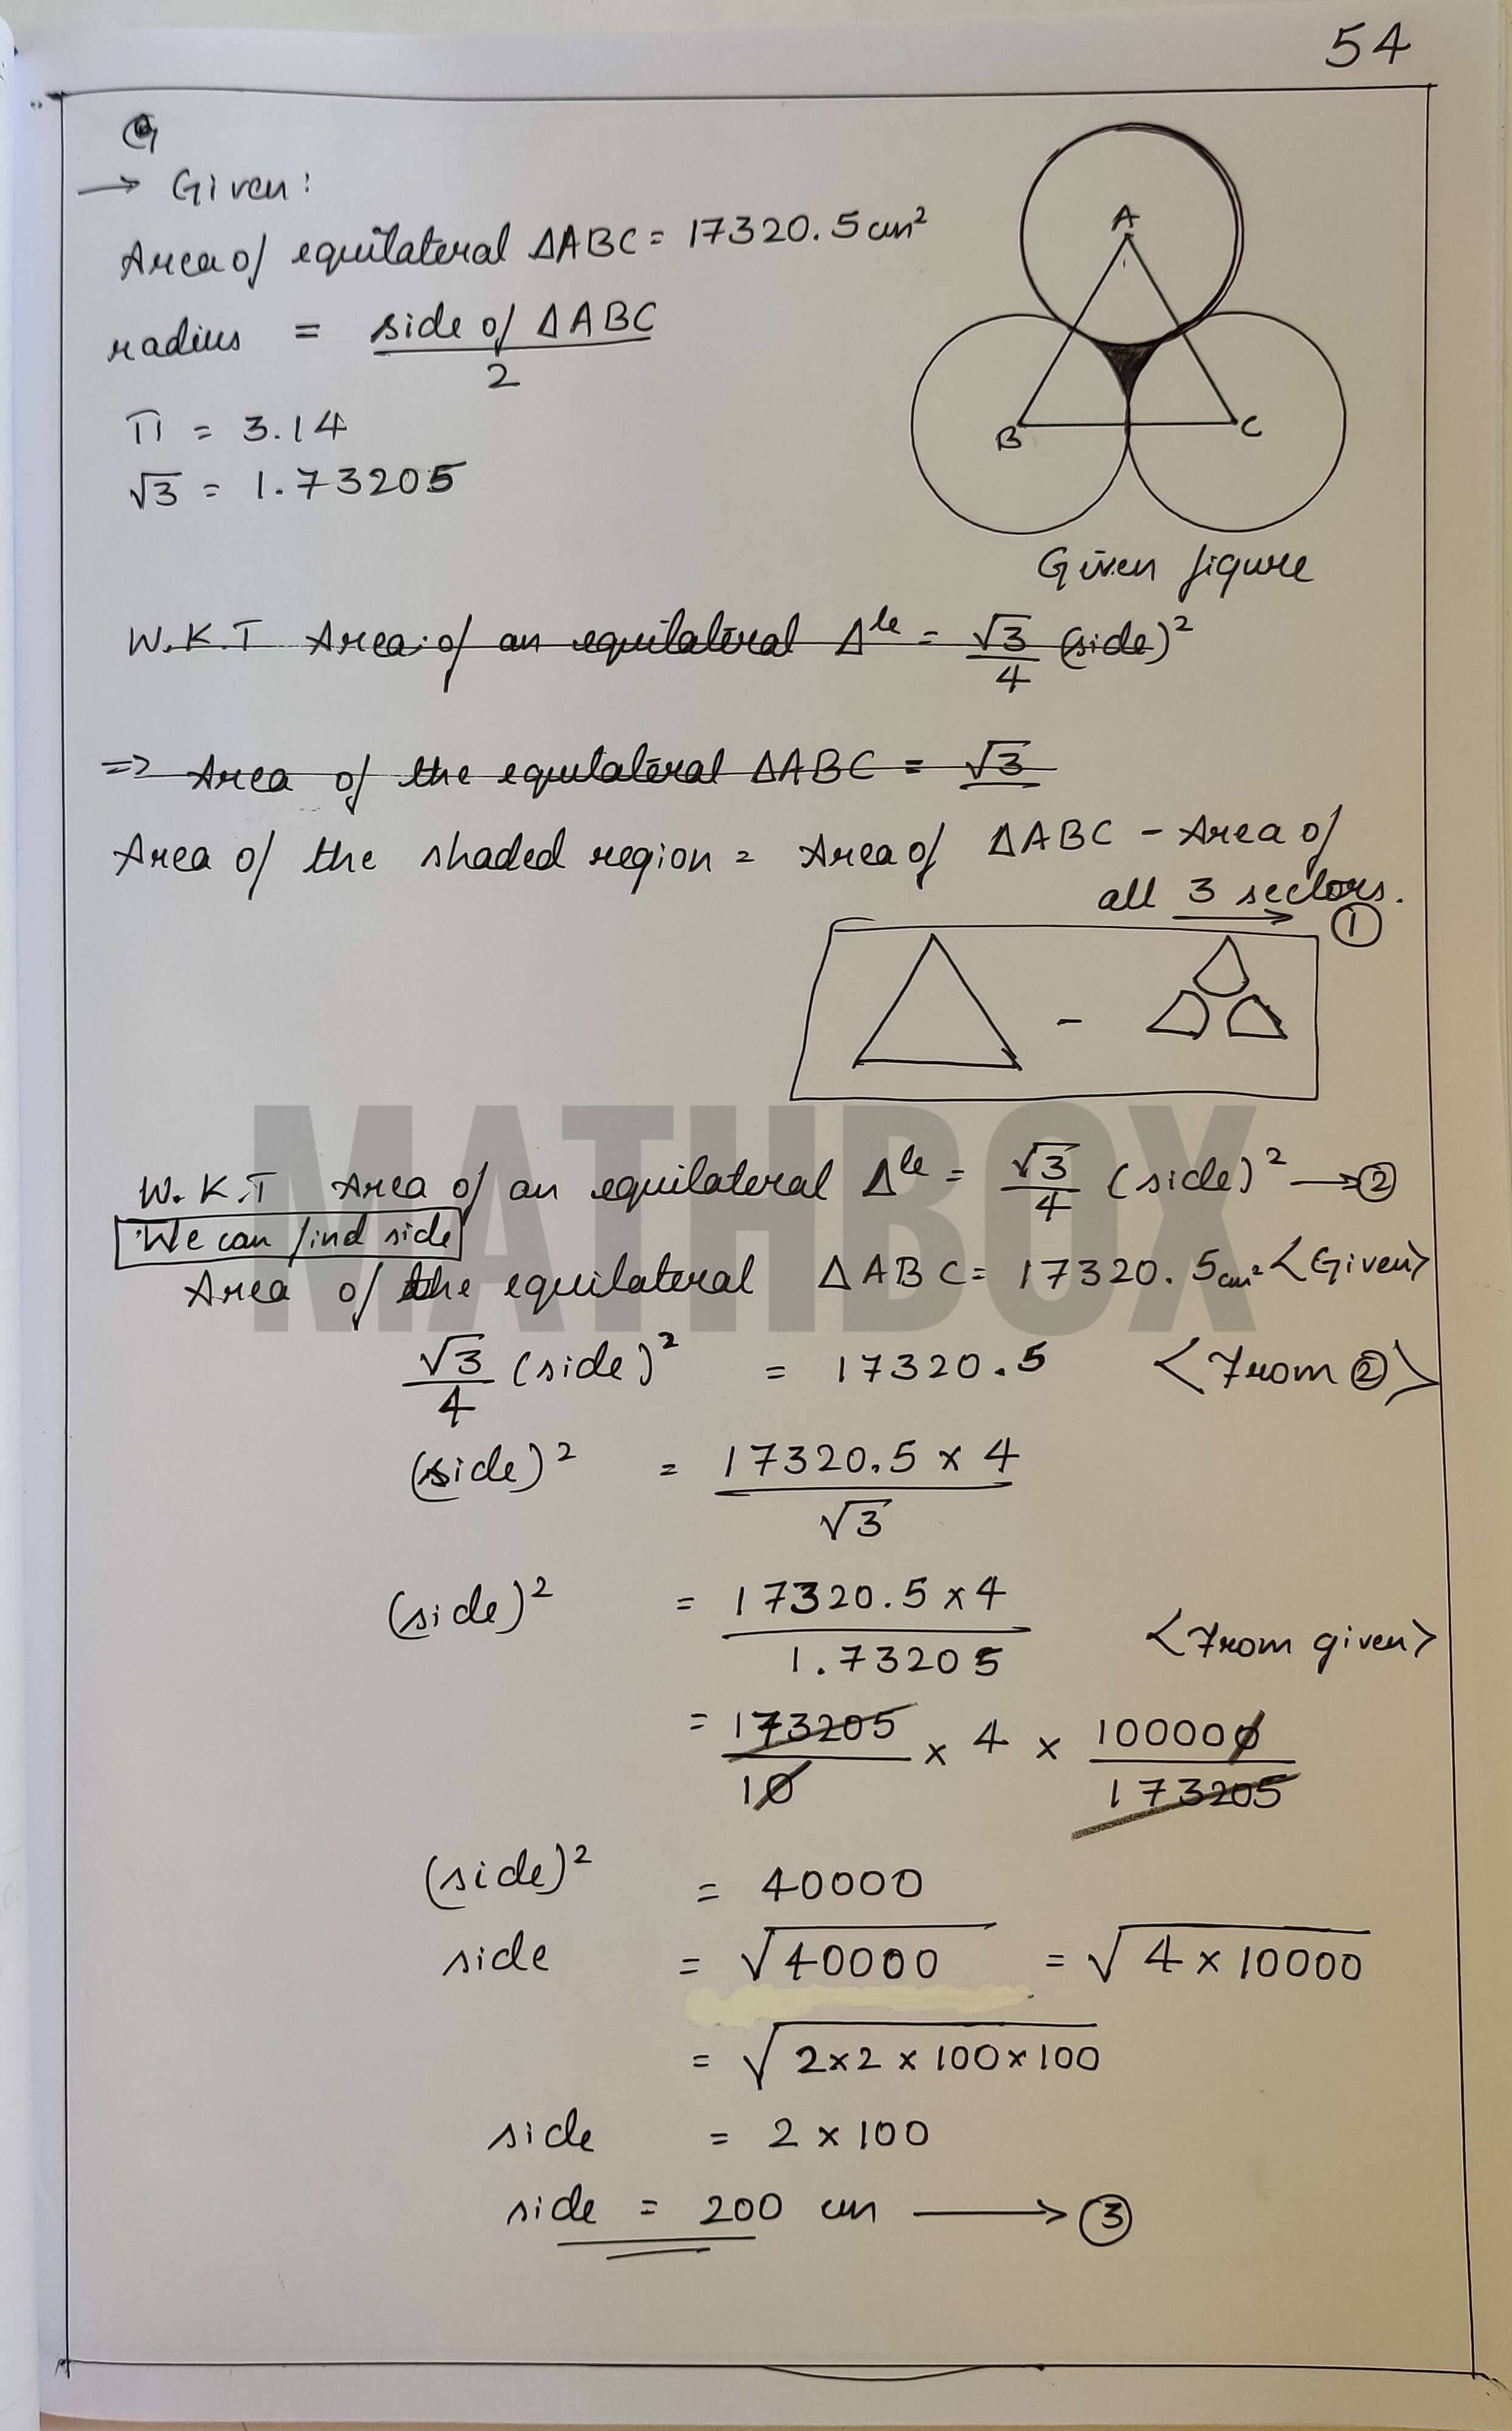 54
Q
→ Given:
Area of equilateral ΔABC = 17320.5 cm²
radius = side of ΔABC / 2
π = 3.14
√3 = 1.73205
A
B
C
Given figure
W.K.T Area of an equilateral Δle = √3/4 (side)²
⇒ Area of the equilateral ΔABC = √3
Area of the shaded region = Area of ΔABC - Area of
all 3 sectors. → ①
-
MATHBOX
W.K.T Area of an equilateral Δle = √3/4 (side)² → ②
We can find side
Area of the equilateral ΔABC = 17320.5 cm² <Given>
√3/4 (side)² = 17320.5 <From ②>
(side)² = 17320.5 × 4 / √3
(side)² = 17320.5 × 4 / 1.73205 <From given>
= 173205/10 × 4 × 100000/173205
(side)² = 40000
side = √40000 = √4 × 10000
= √2×2 × 100×100
side = 2 × 100
side = 200 cm → ③